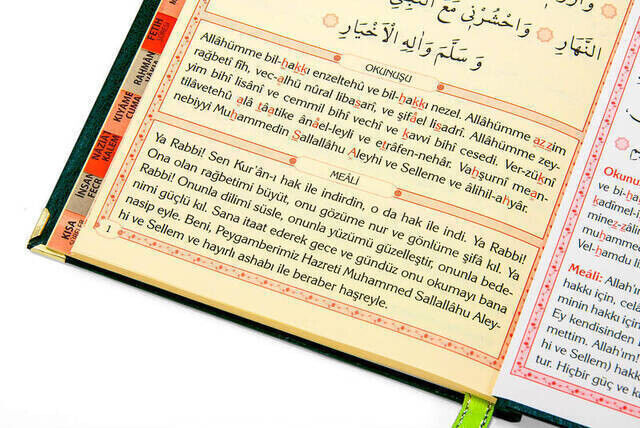 النَّهَارِ وَاحْشُرْنِي مَعَ النَّبِيِّ
وَسَلَّمَ وَاٰلِهِ الْاَخْيَارِ
OKUNUŞU
Allâhümme bil-hakkı enzeltehû ve bil-hakkı nezel. Allâhümme azzim
rağbetî fîh, vec-alhü nûral libasarî, ve şifâel lisadrî. Allâhümme zey-
yim bihî lisânî ve cemmil bihî vechî ve kavvi bihî cesedî. Ver-züknî
tilâvetehû alâ tâatike ânâel-leyli ve etrâfen-nehâr. Vahşurnî mean-
nebiyyi Muhammedin Sallallâhu Aleyhi ve Selleme ve âlihil-ahyâr.
MEÂLİ
Ya Rabbi! Sen Kur’ân-ı hak ile indirdin, o da hak ile indi. Ya Rabbi!
Ona olan rağbetimi büyüt, onu gözüme nur ve gönlüme şifâ kıl. Ya
Rabbi! Onunla dilimi süsle, onunla yüzümü güzelleştir, onunla bede-
nimi güçlü kıl. Sana itaat ederek gece ve gündüz onu okumayı bana
nasip eyle. Beni, Peygamberimiz Hazreti Muhammed Sallallâhu Aley-
hi ve Sellem ve hayırlı ashabı ile beraber haşreyle.
1
YASİN
FETİH
RAHMÂN
KIYÂME
CUMA
NÂZİAT
KALEM
İNSAN
FECR
KISA
Okunu
ve bi-ha
kadîmel-i
minez-zâli
humme
Vel-hamdu li
Meâli: Allah'ı
hakkı için, cel
minin hakkı için
Ey kendisinden
mettim. Allah'ım!
hi ve Sellem) hakk
tur. Hiçbir güç ve k